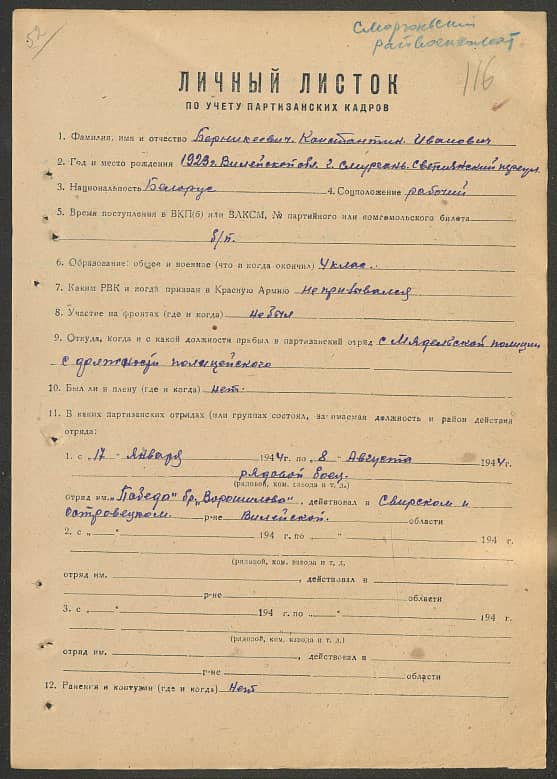 52
Сморгонский
райвоенкомат
116
ЛИЧНЫЙ ЛИСТОК
ПО УЧЕТУ ПАРТИЗАНСКИХ КАДРОВ
1. Фамилия, имя и отчество Берникевич. Константин. Иванович
2. Год и место рождения 1923г. Вилейской обл. г. Сморгань.
3. Национальность Белорус 4. Соцположение рабочий
5. Время поступления в ВКП(б) или ВЛКСМ, № партийного или комсомольского билета
б/п.
6. Образование: общее и военное (что и когда окончил) 4 клас.
7. Каким РВК и когда призван в Красную Армию не призывался
8. Участие на фронтах (где и когда) не был
9. Откуда, когда и с какой должности прибыл в партизанский отряд с Мядельской полиции
с должности полицейского
10. Был ли в плену (где и когда) нет.
11. В каких партизанских отрядах (или группах состоял, занимаемая должность и район действия
отряда:
1. с „17 " Января 1944г. по „8 " Августа 1944г.
рядовой боец.
(рядовой, ком. взвода и т. д.)
отряд им. „Победа" бр. „Ворошилова", действовал в Свирском и
островецком. р-не Вилейской. области
2. с „ " 194 г. по „ " 194 г.
(рядовой, ком. взвода и т. д.
отряд им. , действовал в
р-не области
3. с „ " 194 г. по „ " 194 г.
(рядовой, ком. взвода и т. д.)
отряд им. , действовал в
р-не области
12. Ранения и контузии (где и когда) Нет